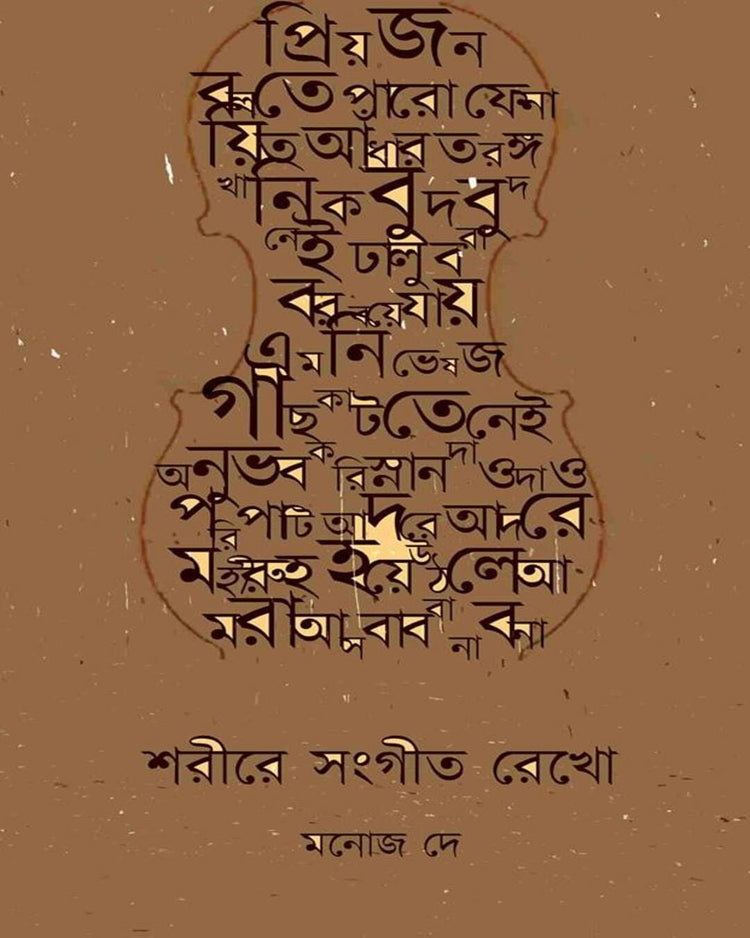 প্রিয়জন
বলতে পারো ফেনা
য়িত আঁধার তরঙ্গ
খানিক বুদবুদ
নেই ঢালু বরা
বর বয়ে যায়
এমনি ভেষজ
গাছ কাটতে নেই
অনুভব করি স্নান দাও দাও
পরিপাটি আদরে আদরে
মহীরুহ হয়ে উঠলে আ
মরা আসবাব বানাবনা
শরীরে সংগীত রেখো
মনোজ দে